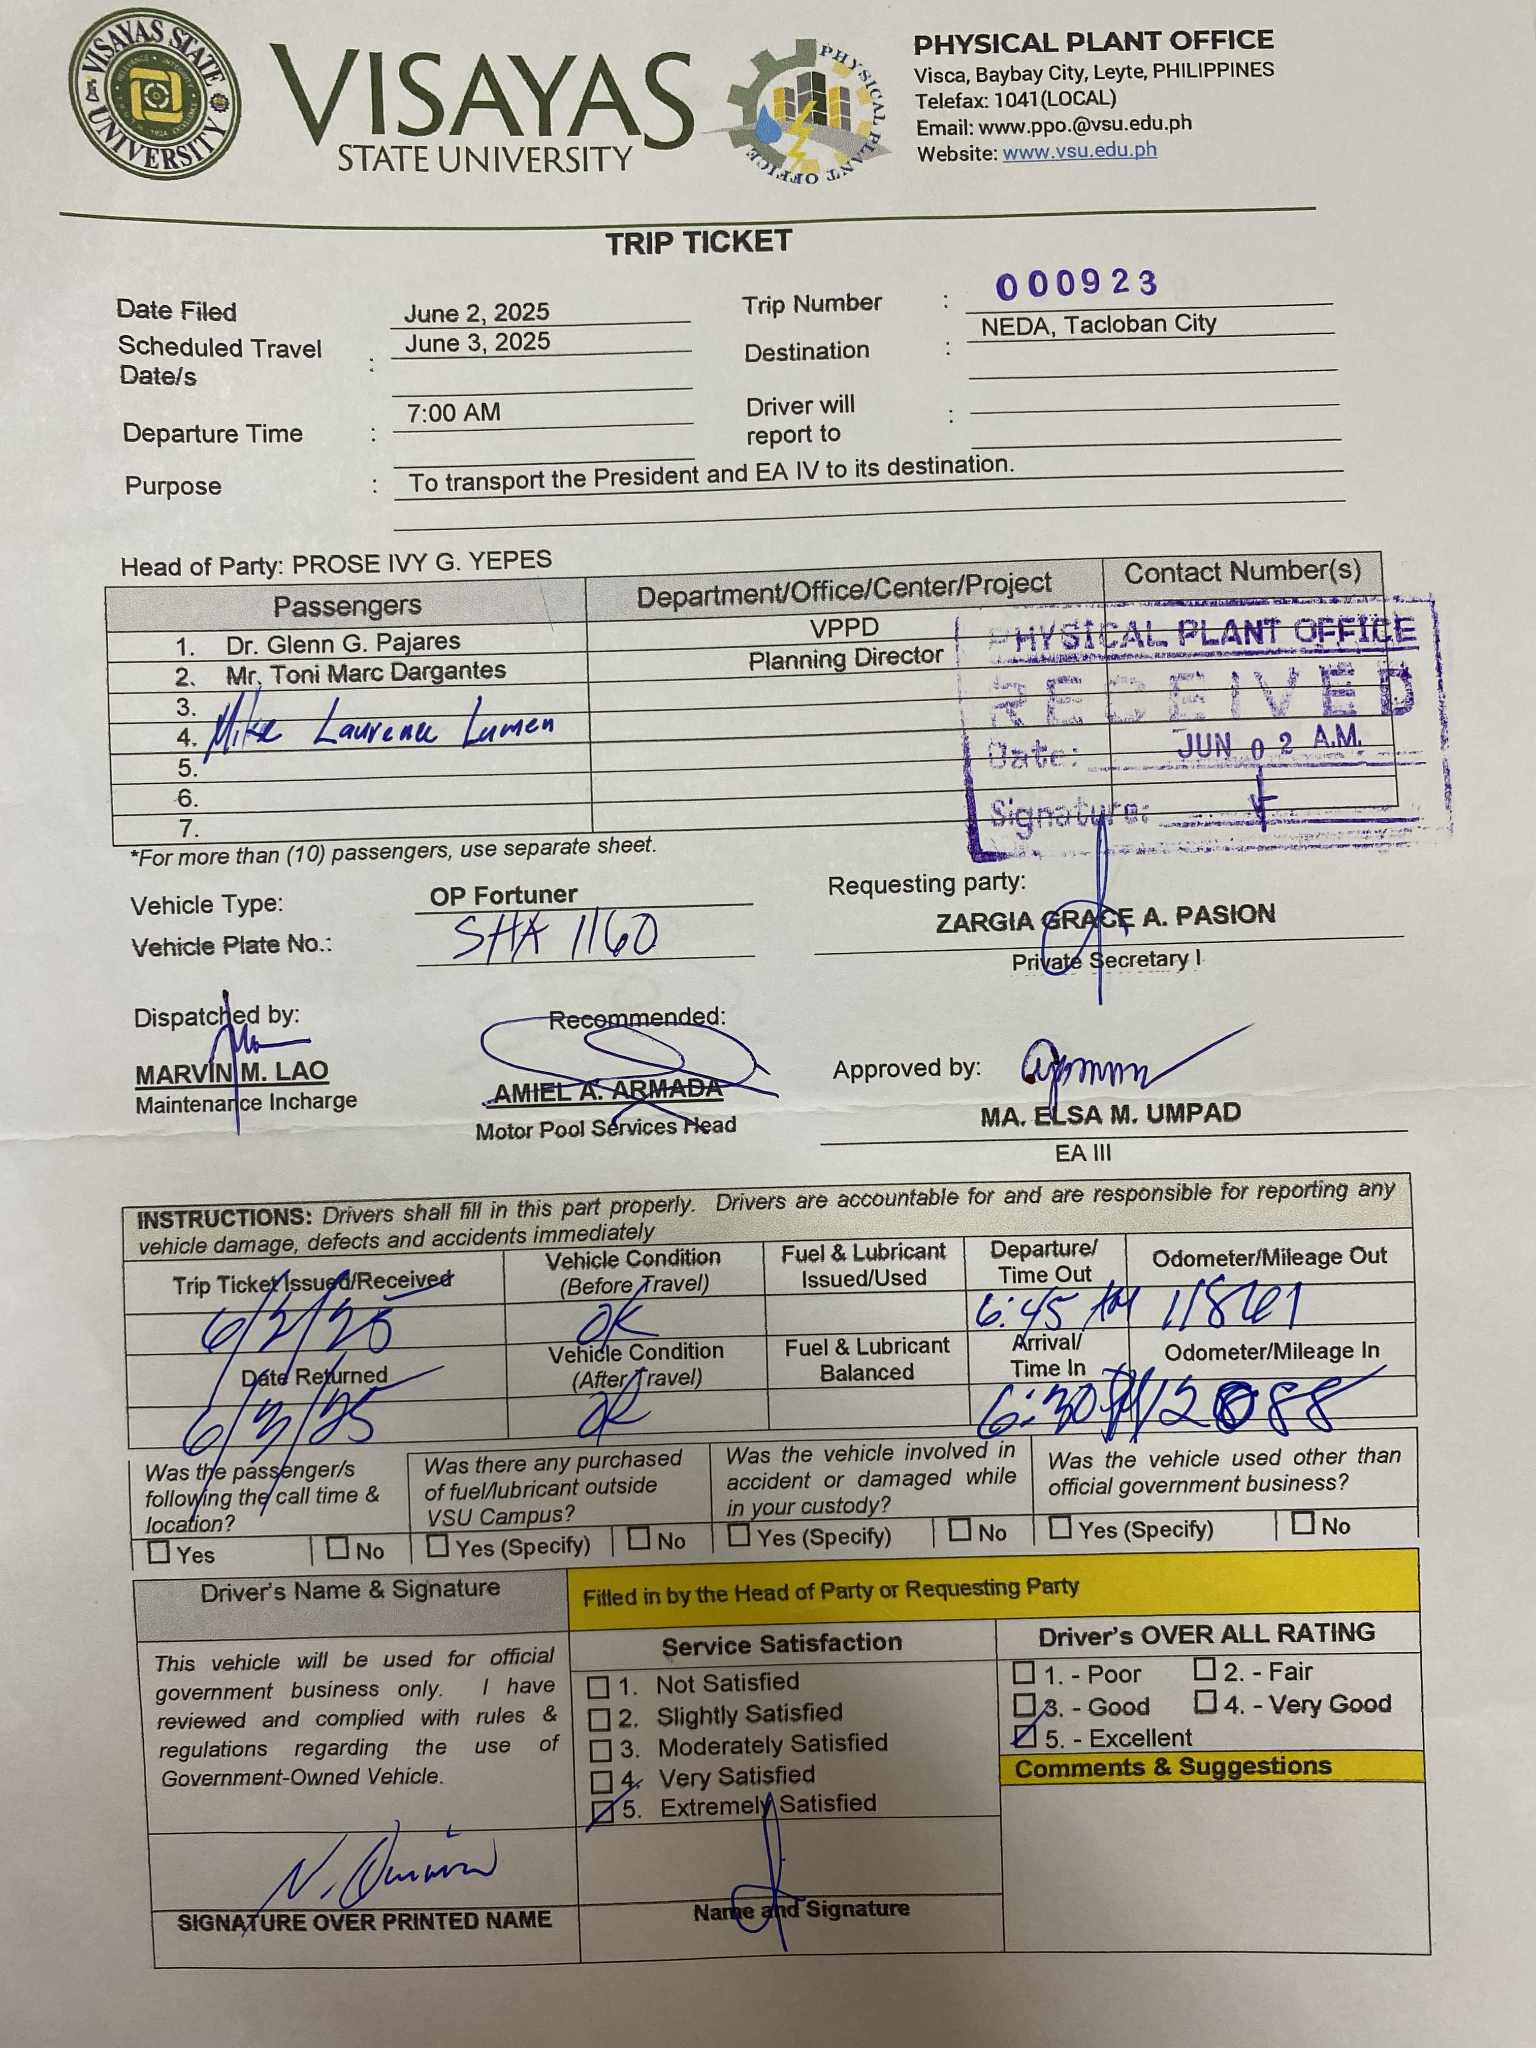 VISAYAS STATE UNIVERSITY
VISAYAS
STATE UNIVERSITY
PHYSICAL PLANT OFFICE
PHYSICAL PLANT OFFICE
Visca, Baybay City, Leyte, PHILIPPINES
Telefax: 1041(LOCAL)
Email: www.ppo.@vsu.edu.ph
Website: www.vsu.edu.ph
TRIP TICKET
Date Filed June 2, 2025 Trip Number : 000923
Scheduled Travel Date/s : June 3, 2025 Destination : NEDA, Tacloban City
Departure Time : 7:00 AM Driver will report to :
Purpose : To transport the President and EA IV to its destination.
Head of Party: PROSE IVY G. YEPES
Passengers Department/Office/Center/Project Contact Number(s)
1. Dr. Glenn G. Pajares VPPD
2. Mr. Toni Marc Dargantes Planning Director
3.
4. Mike Laurence Lumen
5.
6.
7.
PHYSICAL PLANT OFFICE
RECEIVED
Date: JUN 02 A.M.
Signature:
*For more than (10) passengers, use separate sheet.
Vehicle Type: OP Fortuner
Vehicle Plate No.: SHA 1160
Requesting party:
ZARGIA GRACE A. PASION
Private Secretary I
Dispatched by:
MARVIN M. LAO
Maintenance Incharge
Recommended:
AMIEL A. ARMADA
Motor Pool Services Head
Approved by:
MA. ELSA M. UMPAD
EA III
INSTRUCTIONS: Drivers shall fill in this part properly. Drivers are accountable for and are responsible for reporting any
vehicle damage, defects and accidents immediately
Trip Ticket Issued/Received Vehicle Condition (Before Travel) Fuel & Lubricant Issued/Used Departure/ Time Out Odometer/Mileage Out
6/2/25 OK 6:45 AM 11861
Date Returned Vehicle Condition (After Travel) Fuel & Lubricant Balanced Arrival/ Time In Odometer/Mileage In
6/3/25 OK 6:30 PM 12088
Was the passenger/s following the call time & location?
Yes No
Was there any purchased of fuel/lubricant outside VSU Campus?
Yes (Specify) No
Was the vehicle involved in accident or damaged while in your custody?
Yes (Specify) No
Was the vehicle used other than official government business?
Yes (Specify) No
Driver's Name & Signature
This vehicle will be used for official
government business only. I have
reviewed and complied with rules &
regulations regarding the use of
Government-Owned Vehicle.
SIGNATURE OVER PRINTED NAME
Filled in by the Head of Party or Requesting Party
Service Satisfaction
1. Not Satisfied
2. Slightly Satisfied
3. Moderately Satisfied
4. Very Satisfied
5. Extremely Satisfied
Name and Signature
Driver's OVER ALL RATING
1. - Poor 2. - Fair
3. - Good 4. - Very Good
5. - Excellent
Comments & Suggestions